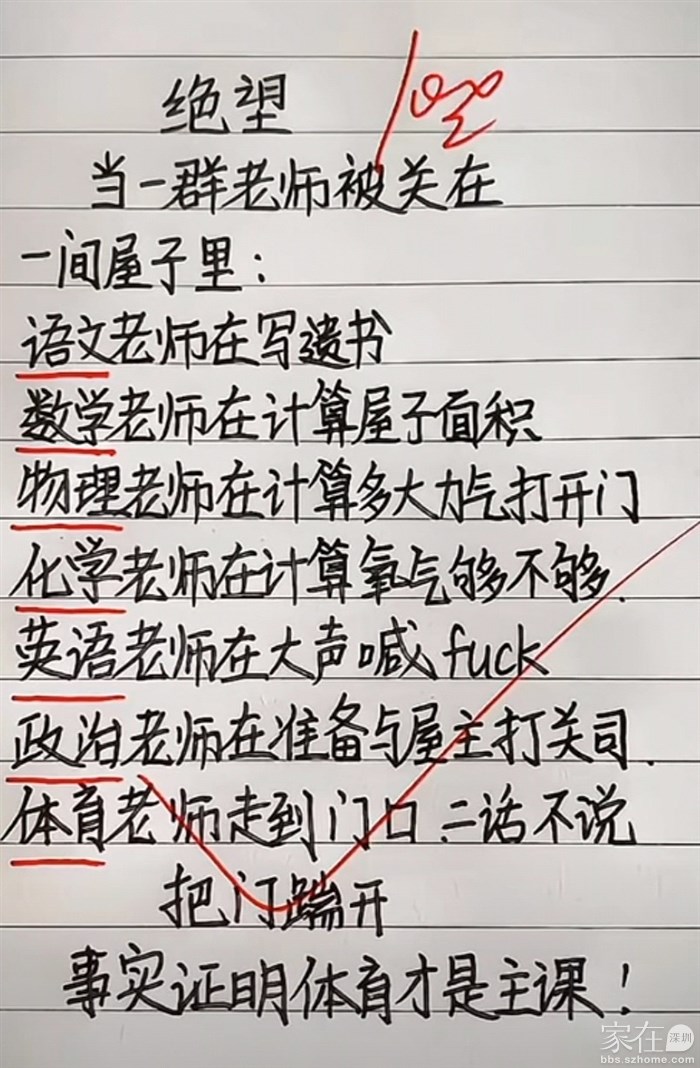 绝望 100
当一群老师被关在
一间屋子里：
语文老师在写遗书
数学老师在计算屋子面积
物理老师在计算多大力气打开门
化学老师在计算氧气够不够.
英语老师在大声喊fuck
政治老师在准备与屋主打关司.
体育老师走到门口.二话不说
把门踹开
事实证明体育才是主课！
家在深圳
bbs.szhome.com